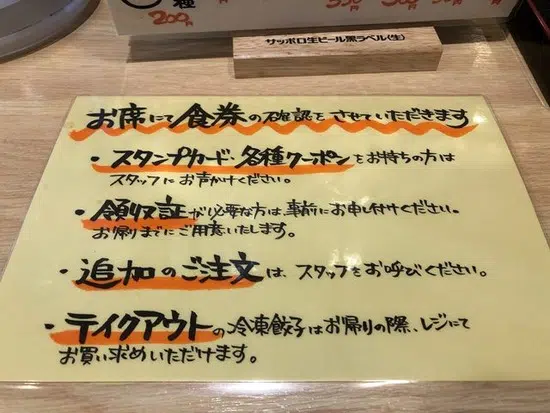 種
200円
サッポロ生ビール黒ラベル(生)
お席にて食券の確認をさせていただきます
・スタンプカード・各種クーポンをお持ちの方は
スタッフにお声かけください。
・領収証が必要な方は、事前にお申し付けください。
お帰りまでにご用意いたします。
・追加のご注文は、スタッフをお呼びください。
・テイクアウトの冷凍餃子はお帰りの際、レジにて
お買い求めいただけます。